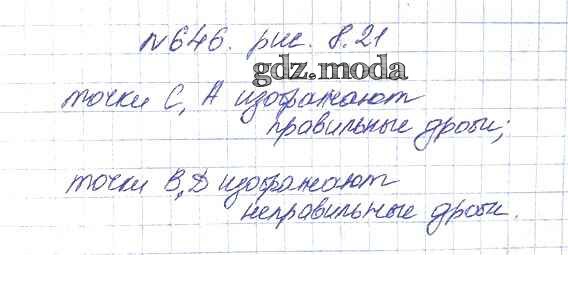 №646. рис. 8.21
gdz.moda
точки С, А изображают
правильные дроби;
точки В, D изображают
неправильные дроби.